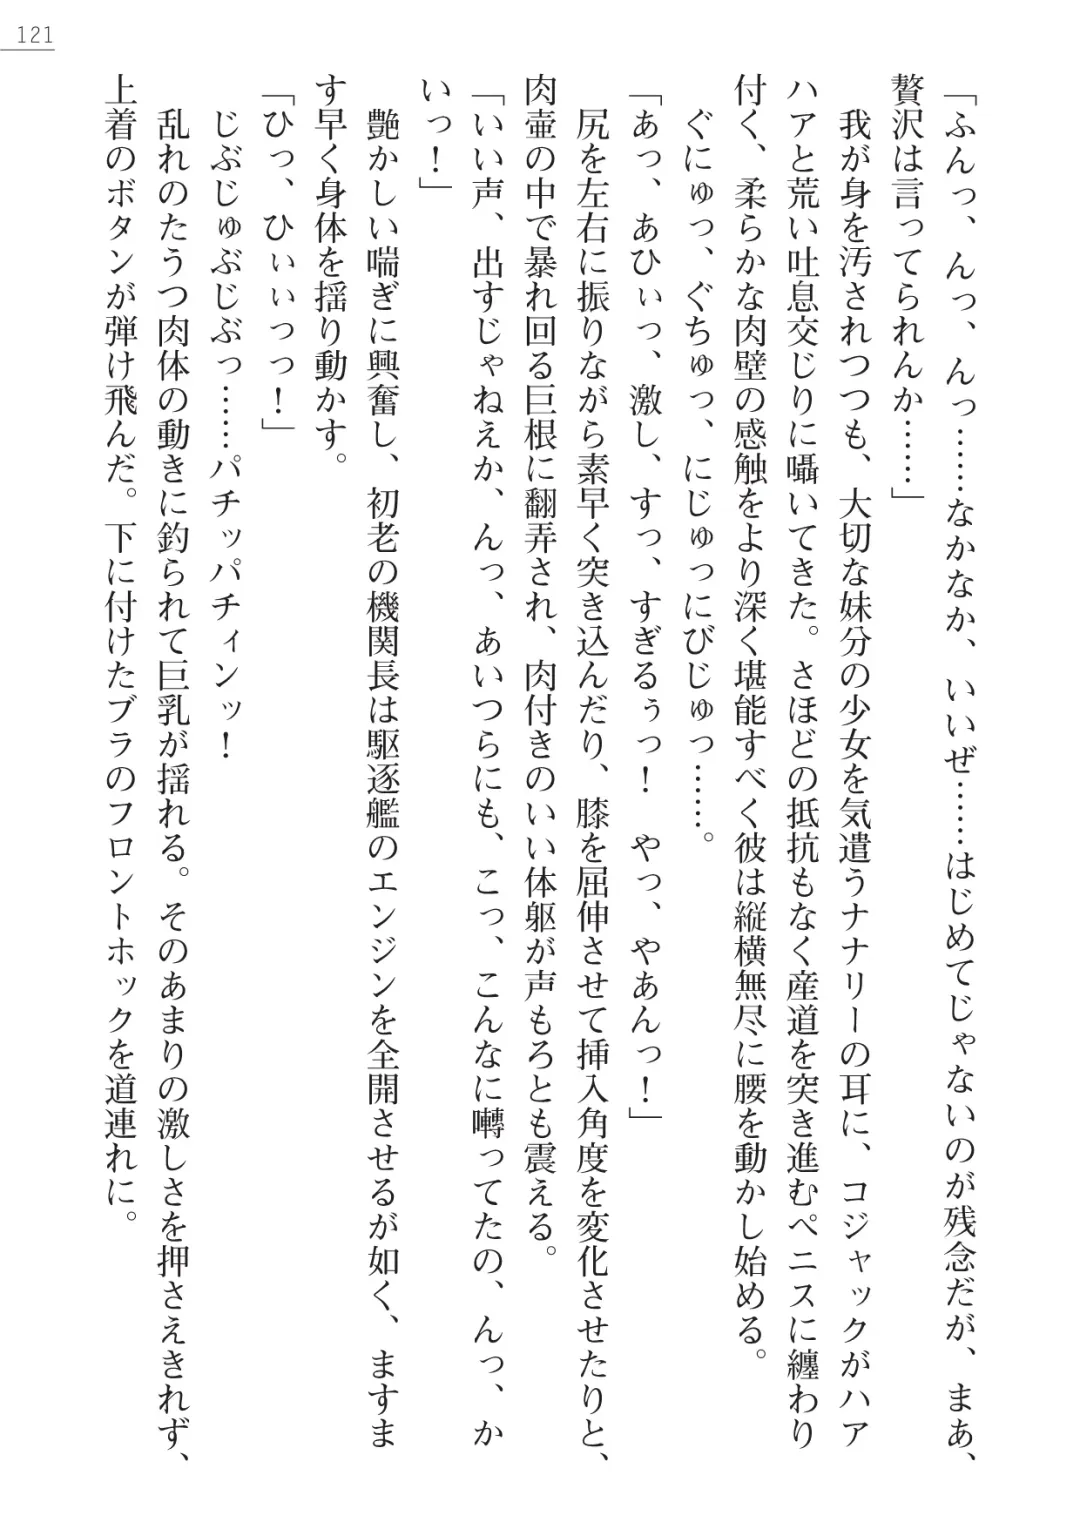 121
「ふんっ、んっ、んっ……なかなか、いいぜ……はじめてじゃないのが残念だが、まあ、
贅沢は言ってられんか……」
我が身を汚されつつも、大切な妹分の少女を気遣うナナリーの耳に、コジャックがハア
ハアと荒い吐息交じりに囁いてきた。さほどの抵抗もなく産道を突き進むペニスに纏わり
付く、柔らかな肉壁の感触をより深く堪能すべく彼は縦横無尽に腰を動かし始める。
ぐにゅっ、ぐちゅっ、にじゅっにびじゅっ……。
「あっ、あひぃっ、激し、すっ、すぎるぅっ！　やっ、やあんっ！」
尻を左右に振りながら素早く突き込んだり、膝を屈伸させて挿入角度を変化させたりと、
肉壷の中で暴れ回る巨根に翻弄され、肉付きのいい体躯が声もろとも震える。
「いい声、出すじゃねえか、んっ、あいつらにも、こっ、こんなに囀ってたの、んっ、か
いっ！」
艶かしい喘ぎに興奮し、初老の機関長は駆逐艦のエンジンを全開させるが如く、ますま
す早く身体を揺り動かす。
「ひっ、ひぃぃっっ！」
じぶじゅぶじぶっ……パチッパチィンッ！
乱れのたうつ肉体の動きに釣られて巨乳が揺れる。そのあまりの激しさを押さえきれず、
上着のボタンが弾け飛んだ。下に付けたブラのフロントホックを道連れに。